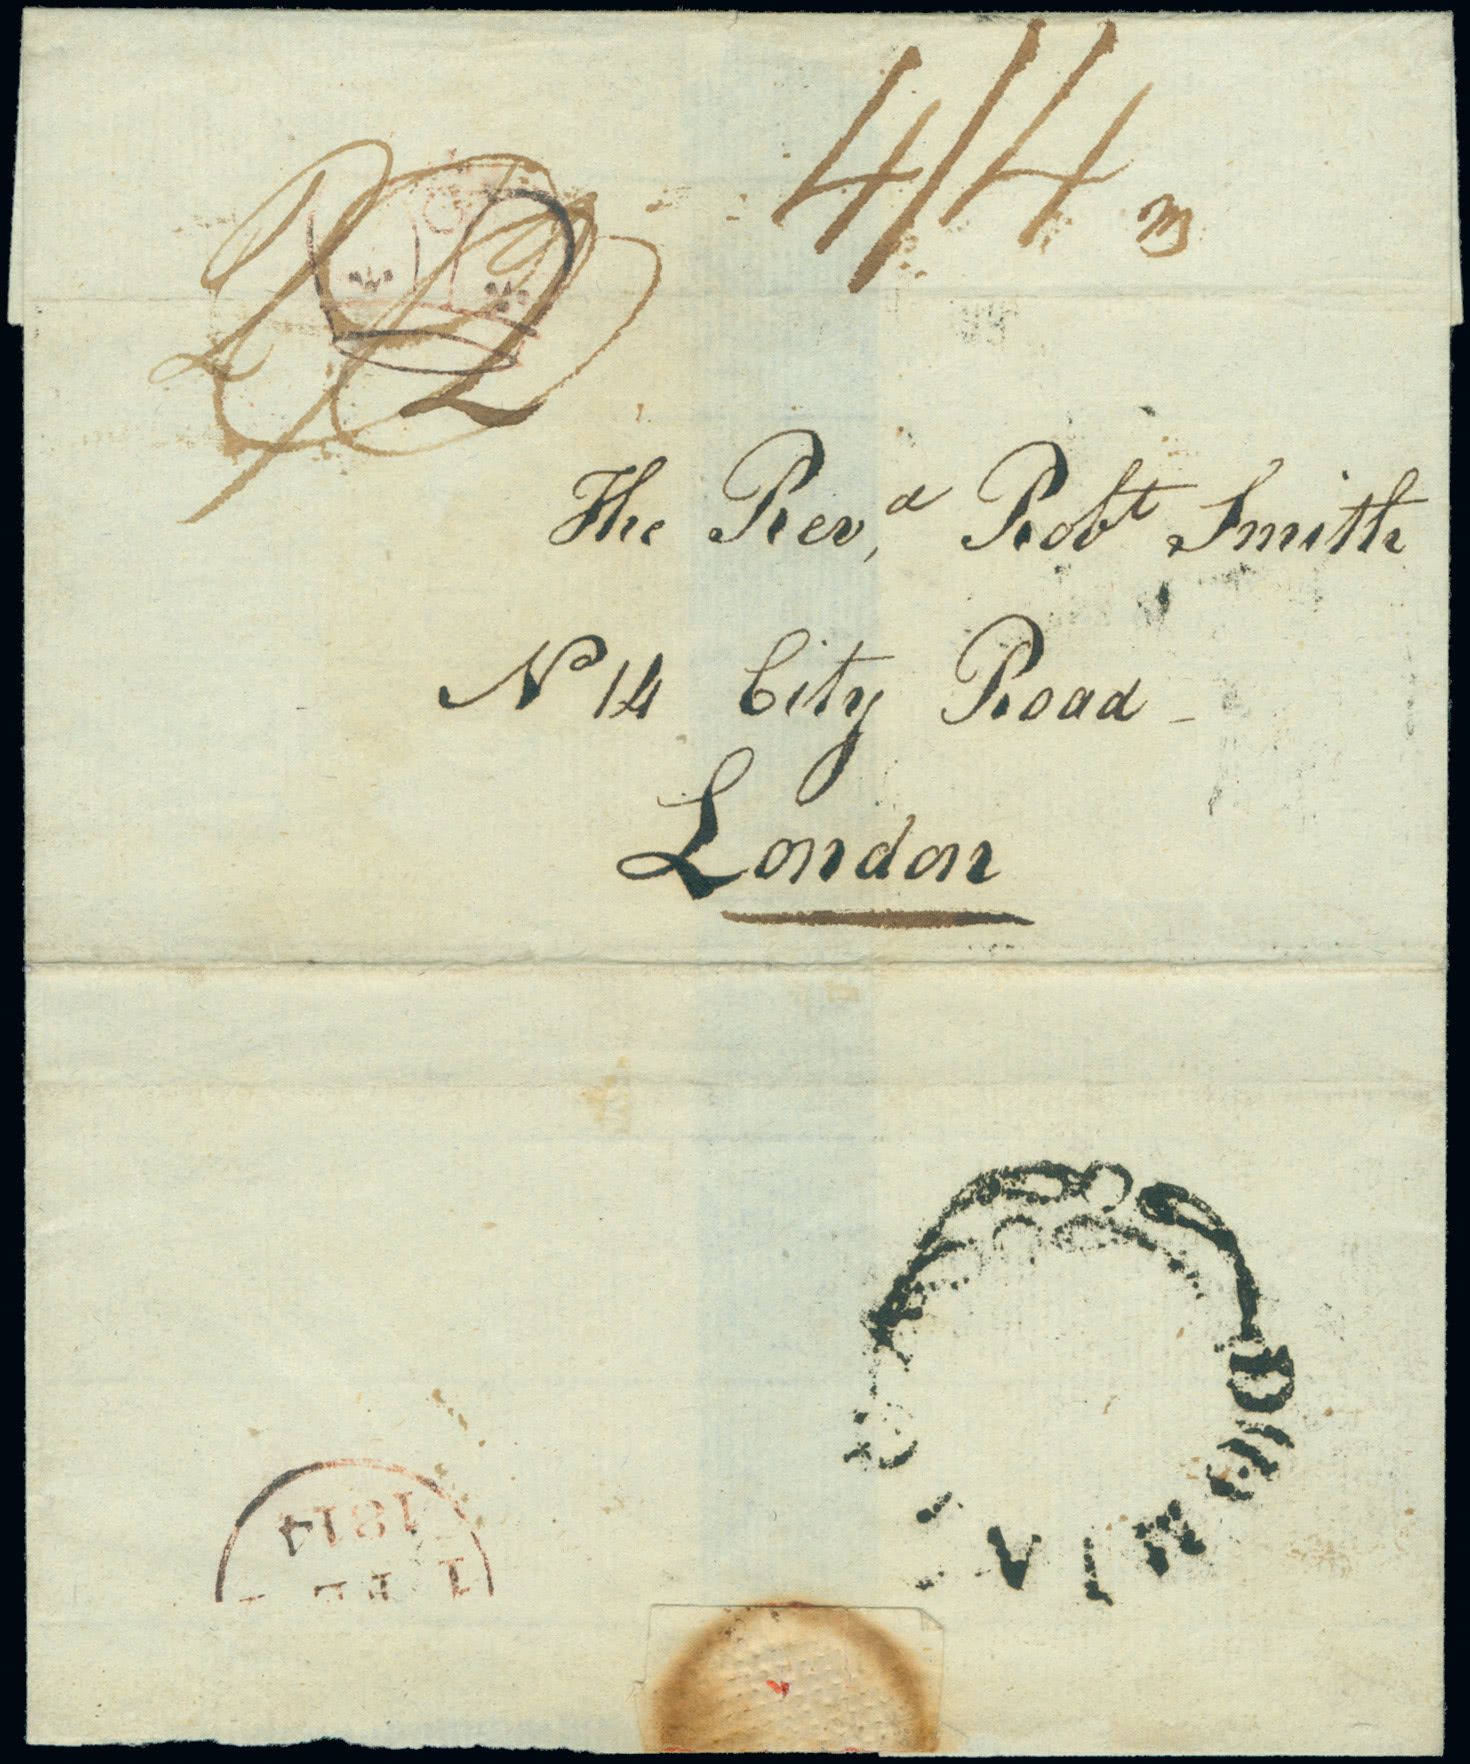 4/4
2
The Rev,d Robt Smith
No 14 City Road
London
1814